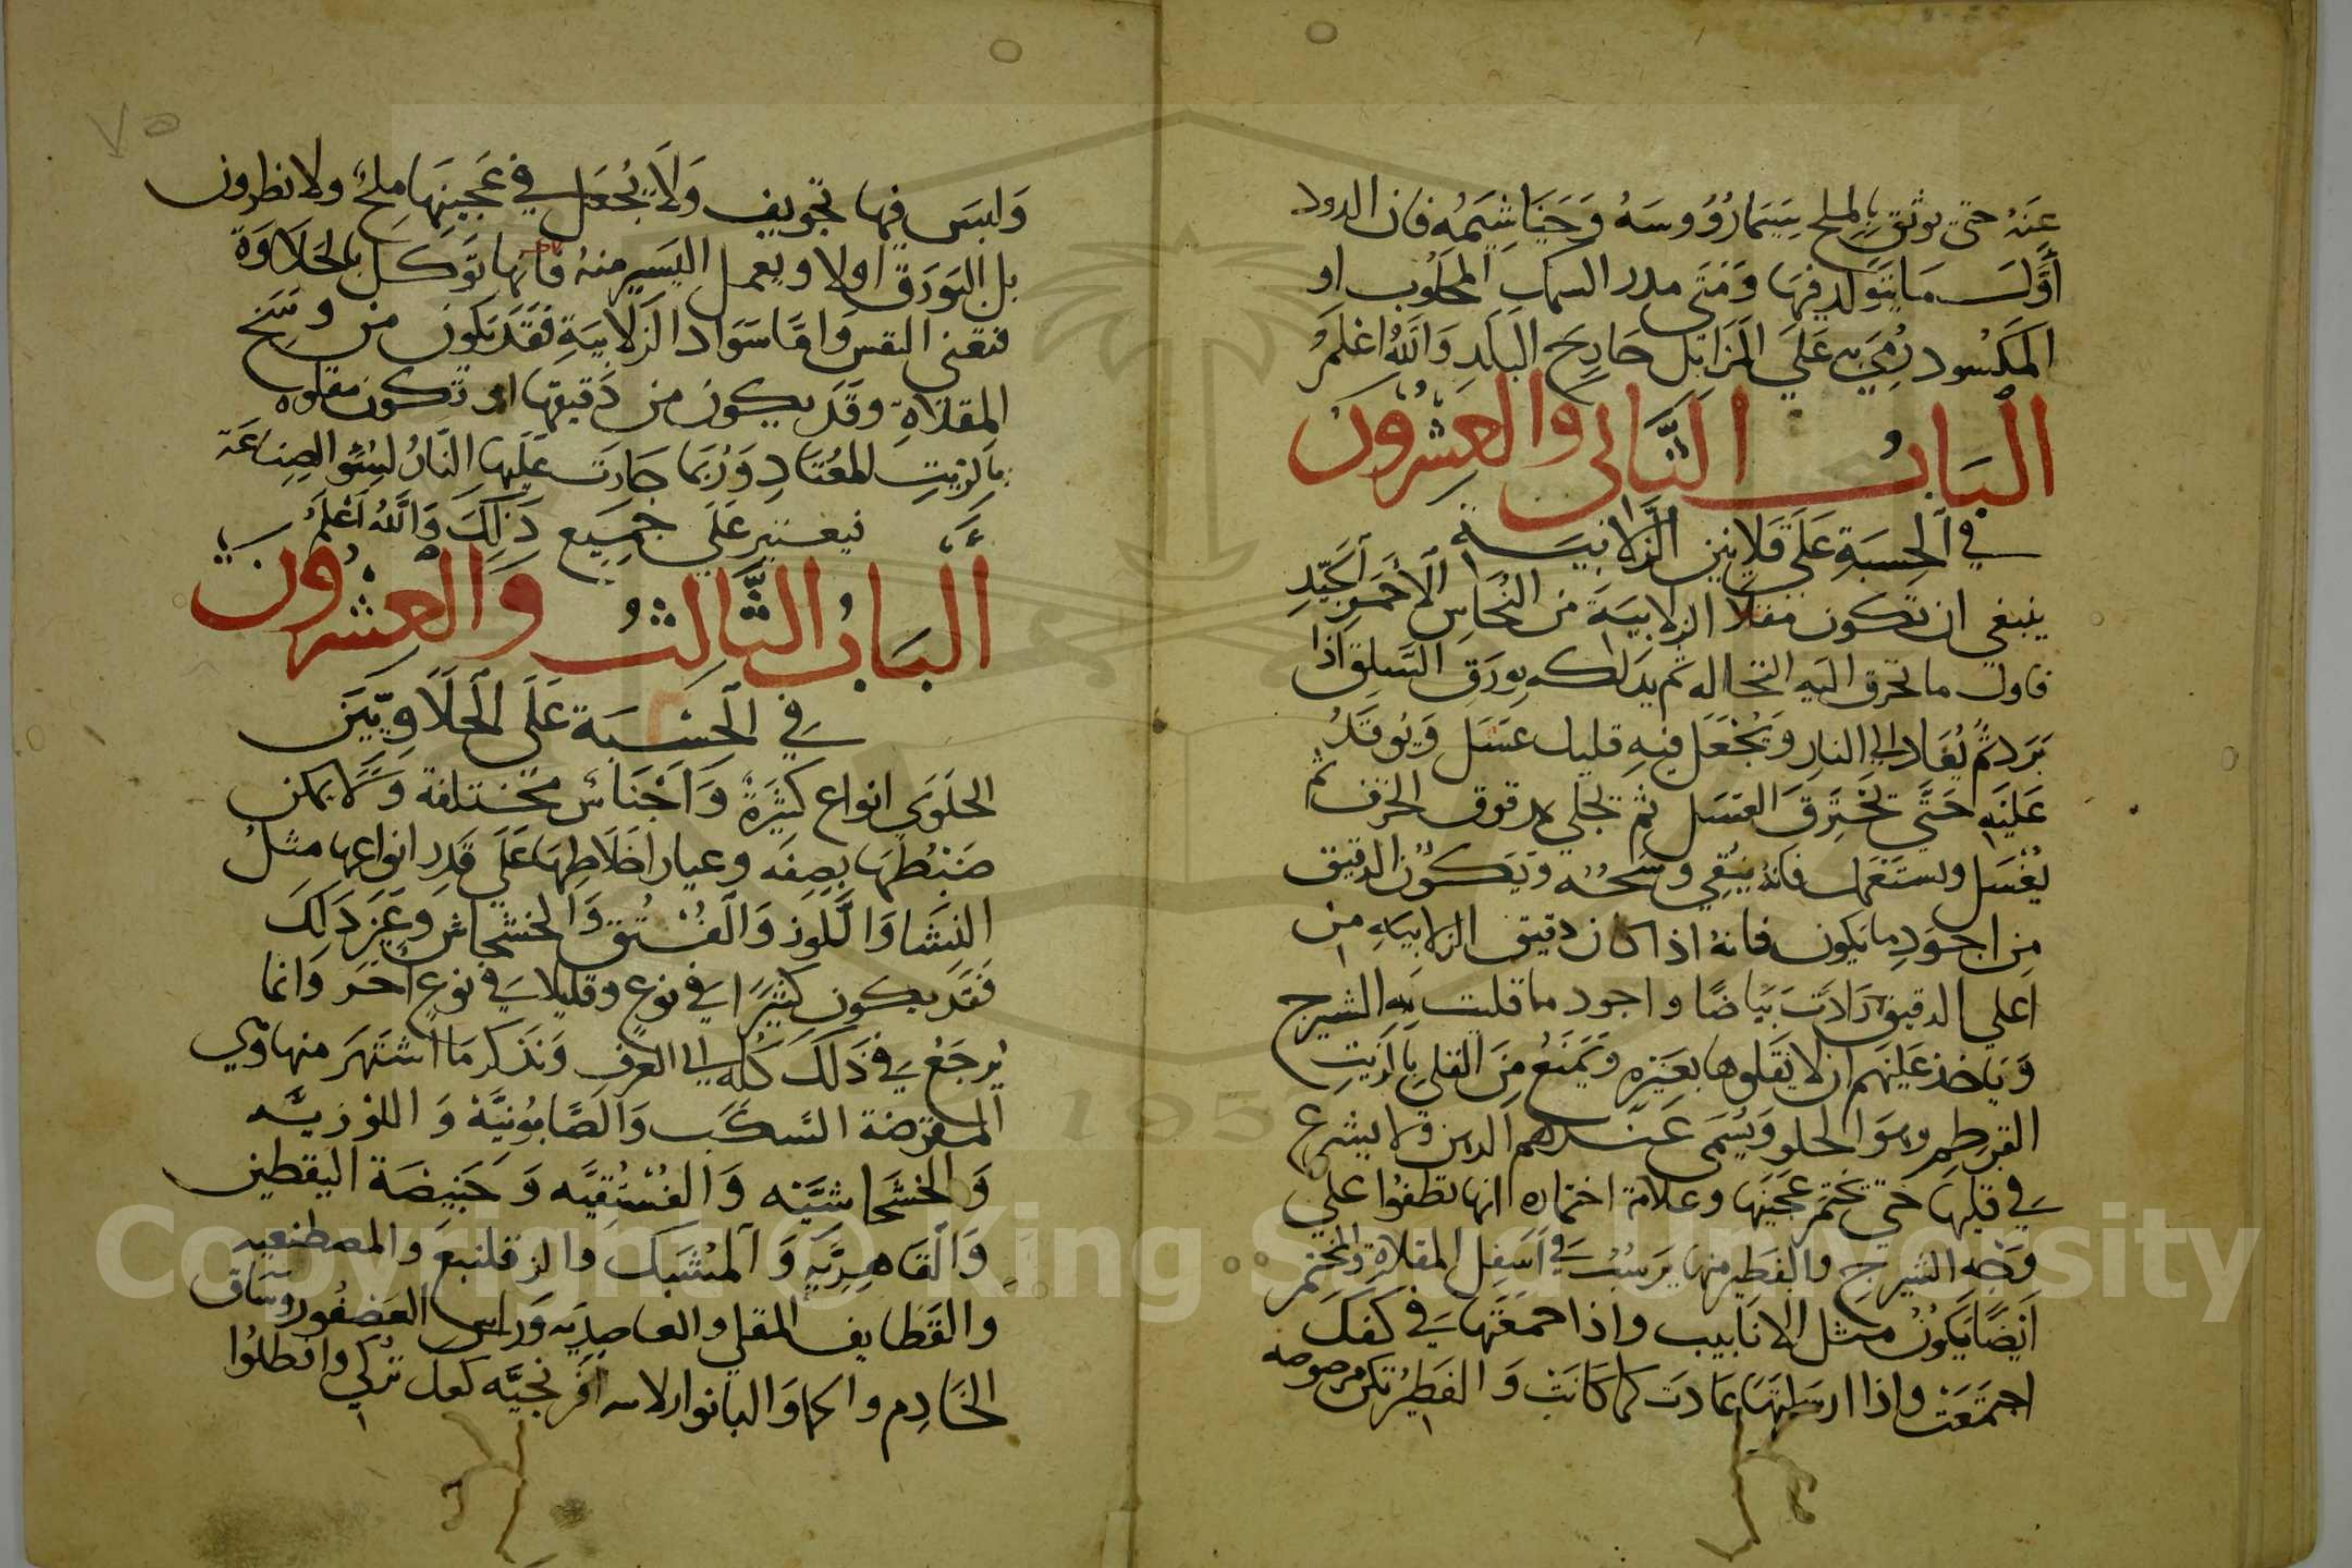 عنه حتى يوثق بالملح سيما رووسه وخياشيمه فان الدود
أول ما يتولد فيها ومتى مدر السمك المجلوب او
المكسود رمي به على المزابل خارج البلد والله اعلم
الباب الثاني والعشرون
في الحسبة على قلايين الزلابية
ينبغي ان تكون مقلا الزلابية من النحاس الأحمر الجيد
فاول ما تحرق اليه النخاله ثم يدلكه بورق السلق اذا
برد ثم يعاد الي النار ويجعل فيه قليل عسل ويوقد
عليه حتى تحترق العسل ثم تجلي بمدقوق الخزف ثم
يغسل ويستعمل فانه ينقي وسخه ويكون الدقيق
من اجود ما يكون فانه اذا كان دقيق الزلابيه من
اعلي الدقيق زادت بياضا واجود ما قليت به الشيرج
وياخذ عليهم ان لا يقلوها بغيره ويمنع من القلي بالزيت
القرطم وهو الحلو ويسمى عندهم ولا يشرع
في قليها حتى تختمر عجينها وعلامة اختماره انها تطفوا علي
وجه الشيرج والفطير منها يرسب في اسفل المقلاة والمختمر
ايضا يكون مثل الانابيب واذا جمعتها في كفك
اجتمعت واذا ارسلتها عادت كما كانت والفطير تكن مرصوصه
٧٥
وليس فيها تجويف ولا يجعل في عجينها ملح ولا نطرون
بل البورق اولا ويعمل اليسير منه فانها توكل بالحلاوة
فتغني النفس واما سواد الزلابية فقد يكون من وسخ
المقلاة وقد يكون من دقيقها او تكون مقلوه
بالزيت المعتاد وربما جارت عليها النار لسوء الصناعة
فيعتبر على جميع ذلك والله اعلم
الباب الثالث والعشرون
في الحسبة على الحلاويين
الحلوى انواع كثيرة واجناس مختلفة ولا يمكن
ضبطها بصفه وعيار اخلاطها على قدر انواعها مثل
النشا واللوز والفستق والخشخاش وغير ذلك
فقد يكون كثيرا في نوع وقليلا في نوع اخر وانما
يرجع في ذلك كله الي العرف ونذكر ما اشتهر منها وهي
المقرضة السكب والصابونية واللوزيه
والخشخاشيه والفستقيه وخبيصة اليقطين
والقاهرية والمشبك والزقلنبع والمصطنعيه
والقطايف المقلي والعاصديه وراس العصفور وساق
الخادم والبانوا افرنجيه كعل تركي وانطلوا